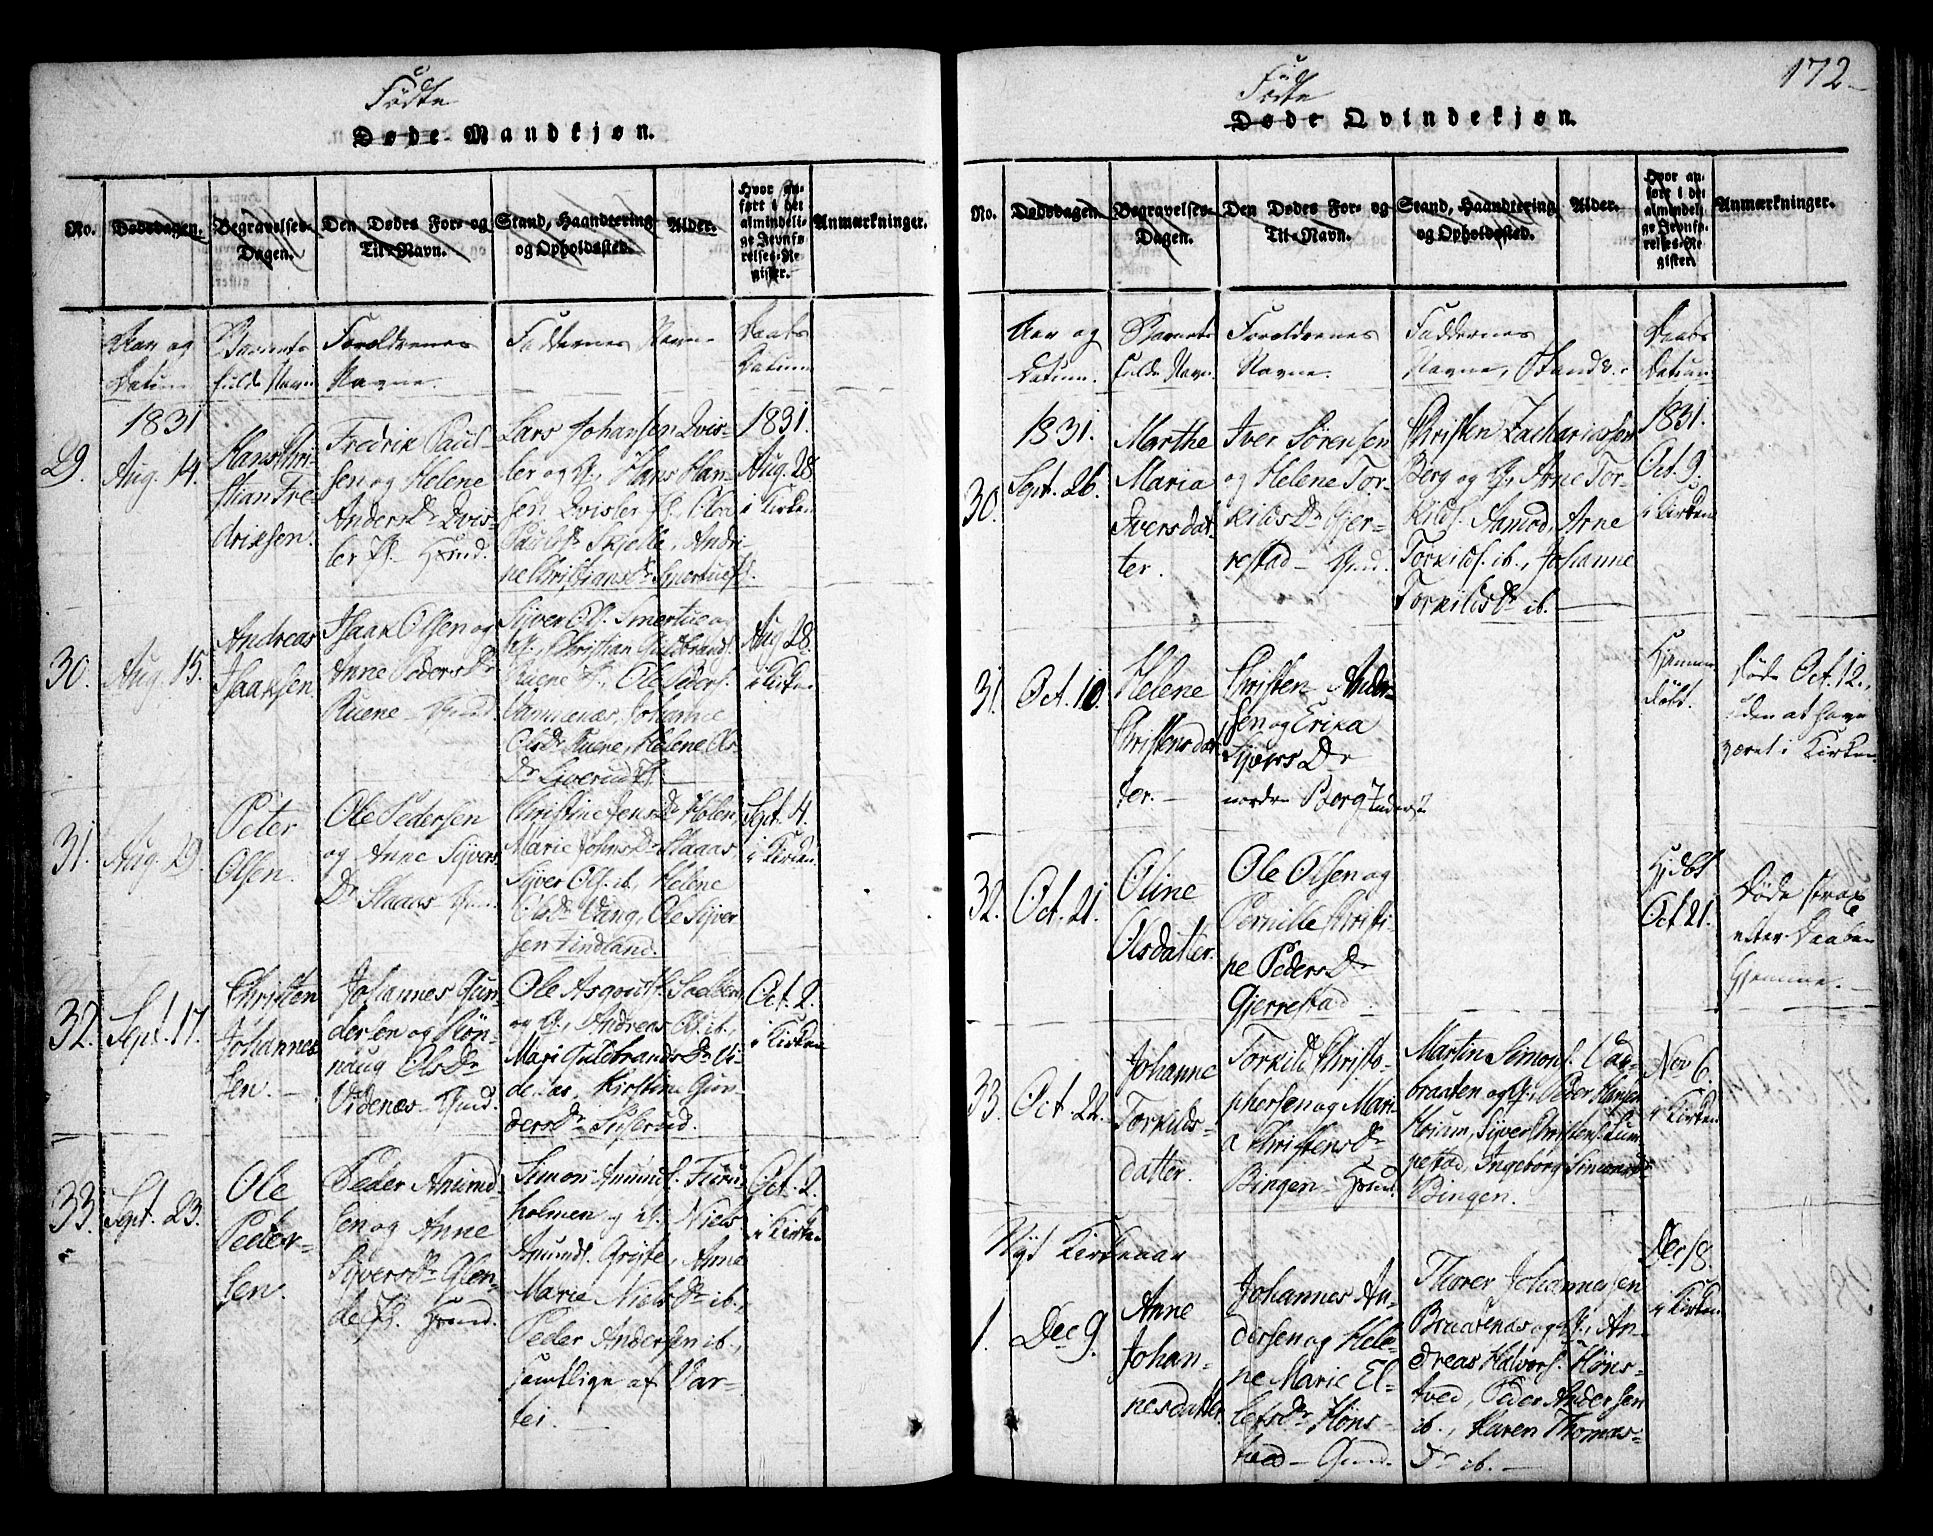 Födte
Døde Mandkjøn.
No.
Dødsdagen.
Begravelses-
Dagen.
Den Dødes For- og
Til-Navn.
Stand, Haandtering
og Opholdssted.
Alder.
Hvor an-
ført i det
almindeli-
ge Jevnfø-
relses-Re-
gister.
Anmærkninger.
Aar og
Datum
Barnets
fulde Navn
Forældrenes
Navne.
Faddernes Navne
Daabs
Datum
29.
1831
Aug. 14.
Hans Chri-
stian Fre
driksen.
Fredrik Paul-
sen og Helene
Anders Dr Qvis-
ler Pl. Hsmd.
Lars Johansen Qvis-
ler og H., Hans Han-
sen Qvisler Pl., Oloa
Pauls Dr Skjelle, Andri-
ne Christians Dr Smertue Pl.
1831.
Aug. 28.
i Kirken
30.
Aug. 15.
Andreas
Isaaksen
Isaak Olsen og
Anne Peders Dr
Ruene
Syver Ols. Smertue og
H., Christian Guldbrands.
Ruene Pl., Ole Peders.
Johanne
Ols Dr Ruene, Helene Ols
Dr Syverud Pl.
Aug 28.
i Kirken
31.
Aug. 29.
Peter
Olsen.
Ole Pedersen
og Anne Syvers
Dr Staaas
Christine Jens Dr Holen
Marie Johns Dr Staaas
Syver Ols. ib., Helene
Ols Dr Vang, Ole Syver
sen Lindland.
Sept. 4.
i Kirken
32.
Sept. 17.
Christen
Johannes
sen.
Johannes Gun-
dersen og Rön-
naug Ols Dr
Videnæs
Ole Asgouts.
og H., Andreas Ols. ib.,
Mari Guldbrands Dr Vi-
denæs, Kirstine Gun-
ders Dr Suserud.
Oct. 2.
i Kirken
33.
Sept. 23.
Ole
Peder-
sen.
Peder Amund-
sen og Anne
Syvers Dr Glen-
de Pl. Hsmd.
Simon Amunds. Furu
holmen og H., Niels
Amunds. Gryte, Anne
Marie Niels Dr ib.,
Peder Andersen ib.,
samtlige af Var-
tei.
Oct. 2.
i Kirken
172
Födte
Døde Qvindekjøn.
No.
Dødsdagen.
Begravelses-
Dagen.
Den Dødes For- og
Til-Navn.
Stand, Haandtering
og Opholdssted.
Alder.
Hvor an-
ført i det
almindeli-
ge Jevnfø-
relses-Re-
gister.
Anmærkninger.
Aar og
Datum.
Barnets
fulde Navn.
Forældrenes
Navne.
Faddernes
Navne, Stand
Daabs
Datum
30.
1831.
Sept. 26.
Marthe
Maria
Iversdat-
ter.
Iver Sörensen
og Helene Tor-
kilds Dr Gjer-
restad
Christen Zachariassen
Berg og H., Arne Tor-
kilds. Aamod, Arne
Torkilds. ib., Johanne
Torkilds Dr ib.
1831.
Oct. 9.
i Kirken
31.
Oct. 10.
Helene
Christensdat
ter.
Christen Ander-
sen og Erika
Syvers Dr
nordre Berg
Hjemme
döbt.
döde Oct. 12.,
uden at have
været i Kirken
32.
Oct. 21.
Oline
Olsdatter.
Ole Olsen og
Pernille Christi-
ne Peders Dr
Gjerrestad
Hjdöbt
Oct 21.
Döde strax
efter Daaben
hjemme.
33.
Oct. 22.
Johanne
Torkilds-
datter.
Torkild Christo-
phersen og Mari-
a Christens Dr
Bingen Hsmd.
Martin Simons.
braaten og H., Peder Hansen
Moium, Syver Christens. Lum
pestad, Ingeborg Simons Dr
Bingen.
Nov 6.
i Kirken
Nyt Kirkeaar
1.
Dec 9.
Anne
Johan-
nesdatter.
Johannes An-
dersen og Hele-
ne Marie El-
lefs Dr Höns-
tved
Thorer Johannessen
Bruarenæs og H., An-
dreas Halvors. Höns-
tved, Peder Andersen
ib., Karen Thomas-
Dr ib.
Dec 18.
i Kirken